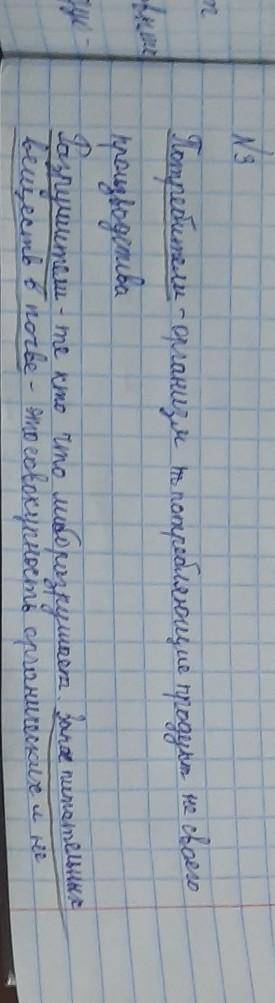 №3
Потребители - организм т потребляющие продукт не своего
производства
Разрушители - те кто что либо разрушает. Запас питательных
веществ в почве - это совокупность органических и не